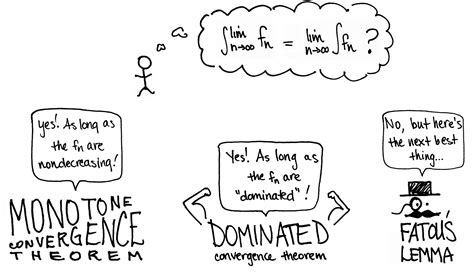 ∫ lim n→∞ fn = lim n→∞ ∫ fn ?
Yes! As long as
the fn are
nondecreasing!
MONOTONE
CONVERGENCE
THEOREM
Yes! As long as
the fn are
"dominated"!
DOMINATED
convergence theorem
No, but here's
the next best
thing...
FATOU'S
LEMMA